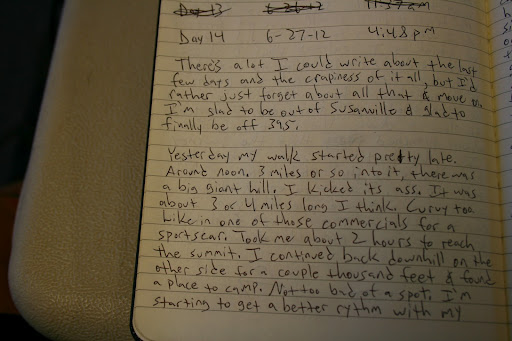 Day 13 6-26-12 11:37am
Day 14 6-27-12 4:48pm
There's a lot I could write about the last
few days and the crapiness of it all, but I'd
rather just forget about all that & move on.
I'm glad to be out of Susanville & glad to
finally be off 395.
Yesterday my walk started pretty late.
Around noon. 3 miles or so into it, there was
a big giant hill. I kicked its ass. It was
about 3 or 4 miles long I think. Curvy too
like in one of those commercials for a
sportscar. Took me about 2 hours to reach
the summit. I continued back downhill on the
other side for a couple thousand feet & found
a place to camp. Not too bad of a spot. I'm
starting to get a better rythm with my